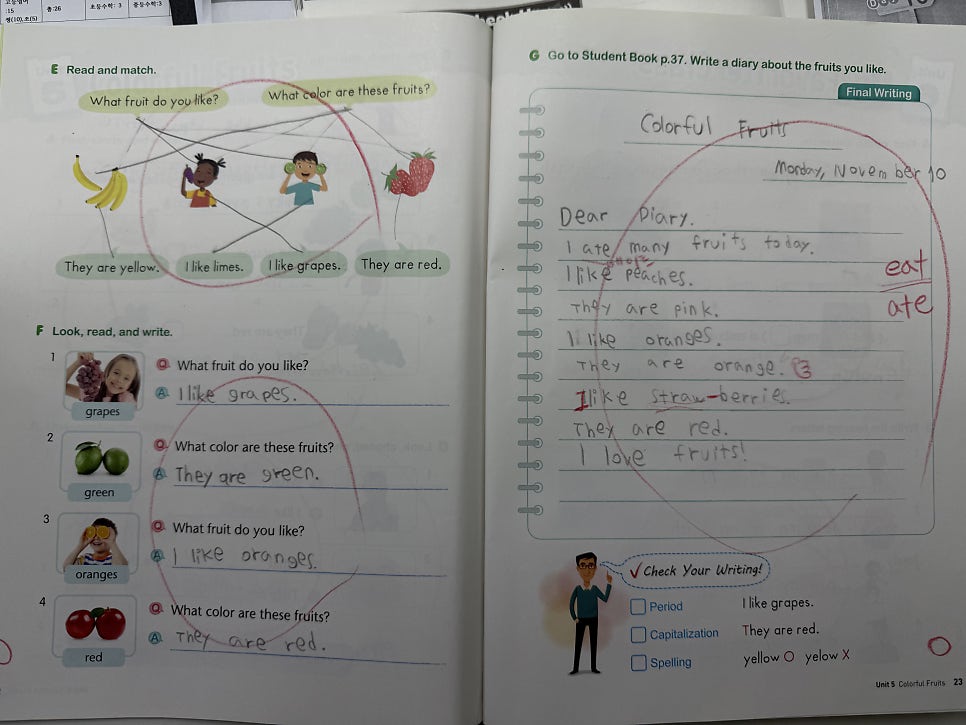 :15
총:26
초등수학: 3
중등수학:3
E Read and match.
What fruit do you like?
What color are these fruits?
They are yellow.
I like limes.
I like grapes.
They are red.
F Look, read, and write.
1
grapes
Q What fruit do you like?
A I like grapes.
2
green
Q What color are these fruits?
A They are green.
3
oranges
Q What fruit do you like?
A I like oranges.
4
red
Q What color are these fruits?
A They are red.
G Go to Student Book p.37. Write a diary about the fruits you like.
Final Writing
Colorful Fruits
Monday, November 10
Dear Diary.
I ate many fruits today.
I like peaches.
eat
They are pink.
ate
I like oranges.
They are orange.
I like straw-berries.
They are red.
I love fruits!
✓ Check Your Writing!
Period
I like grapes.
Capitalization
They are red.
Spelling
yellow O yelow X
Unit 5 Colorful Fruits 23